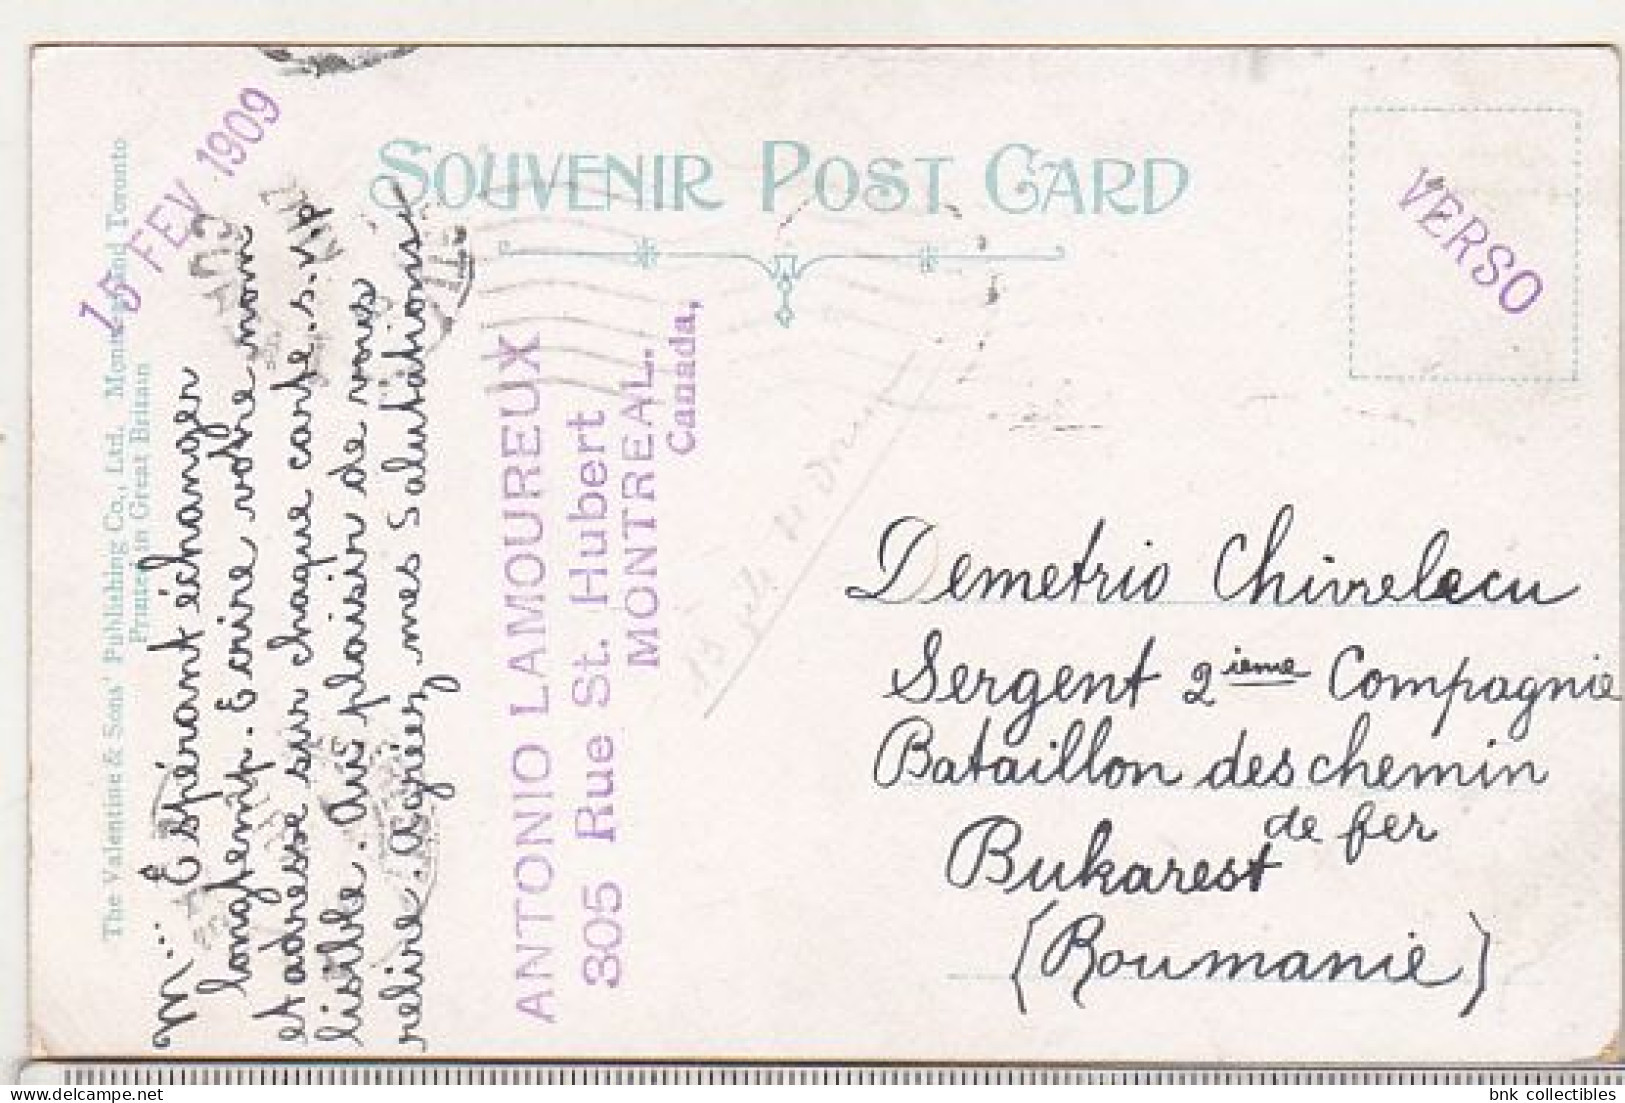 15 FEV 1909
SOUVENIR POST CARD
VERSO
The Valentine & Sons' Publishing Co., Ltd. Montreal and Toronto
Printed in Great Britain
M... Espérant échanger
longtemp. Ecrire votre nom
et adresse sur chaque carte s.v.p
lisible. Au plaisir de vous
relire. Agréez mes Salutations
ANTONIO LAMOUREUX
305 Rue St. Hubert
MONTREAL.
Canada,
Demetrio Chivrelacu
Sergent 2ieme Compagnie
Bataillon des chemin
de fer
Bukarest
(Roumanie)
bnk collectibles